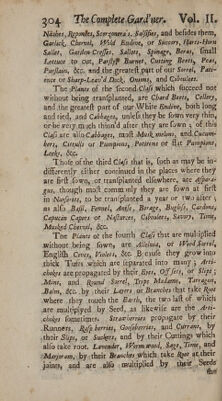 304 The Complete Gard'ner. Vol. II.
Naches, Reponses, Scorzonera's, Salsifies, and besides them,
Garlick, Chervil, Wild Endive, or Succory, Harts-Horn
Sallet, Garden Cresses, Sallots, Spinage, Borax, small
Lettuce to Cut, Parsly Burnet, Cutting Beets, Peas,
Purslain, &c. and the greatest part of our Sorrel, Patience
or Sharp-Leav'd Dock, Onions, and Ciboulets.
The Plants of the second Class which succeed not
without being transplanted, are Chard Beets, Cellery,
and the greatest part of our White Endive, both long
and tied, and Cabbages, unless they be sown very thin,
or be very much thinn'd after they are sown; of this
Class are also Cabbages, most Musk melons, and Cucumbers,
Citrulls or Pumpions, Potirons or flat Pumpions,
Leeks, &c.
Those of the third Class that is, such as may be indifferently
either continued in the places where they
are first sown, or transplanted elsewhere, are Asparagus,
though most commonly they are sown at first
in Nurseries, to be transplanted a year or two after;
as also Basil, Fennel, Anise, Borage, Bugloss, Cardons,
Capucin Capers or Nasturces, Ciboulets, Savory, Time,
Musked Chervil, &c.
The Plants of the fourth Class that are multiplied
without being sown, are Alleluia, or Wood Sorrel,
English Cives, Violets, &c. Because they grow into
thick Tufts which are separated into many; Artichokes
are propagated by their Eyes, Off sets, or Slips;
Mint, and Round Sorrel, Tripe Madame, Tarragon,
Balm, &c. by their Layers or Branches that take Root
where they touch the Earth, the two last of which
are multiplyed by Seed, as likewise are the Artichokes
sometimes. Straw berries propagate by their
Runners, Rasp berries, Goosberries, and Currans, by
their Slips, or Suckers, and by their Cuttings which
also take root. Lavender, Worm wood, Sage, Time, and
Marjoram, by their Branches which take Root at their
joints, and are also multiplied by their Seeds